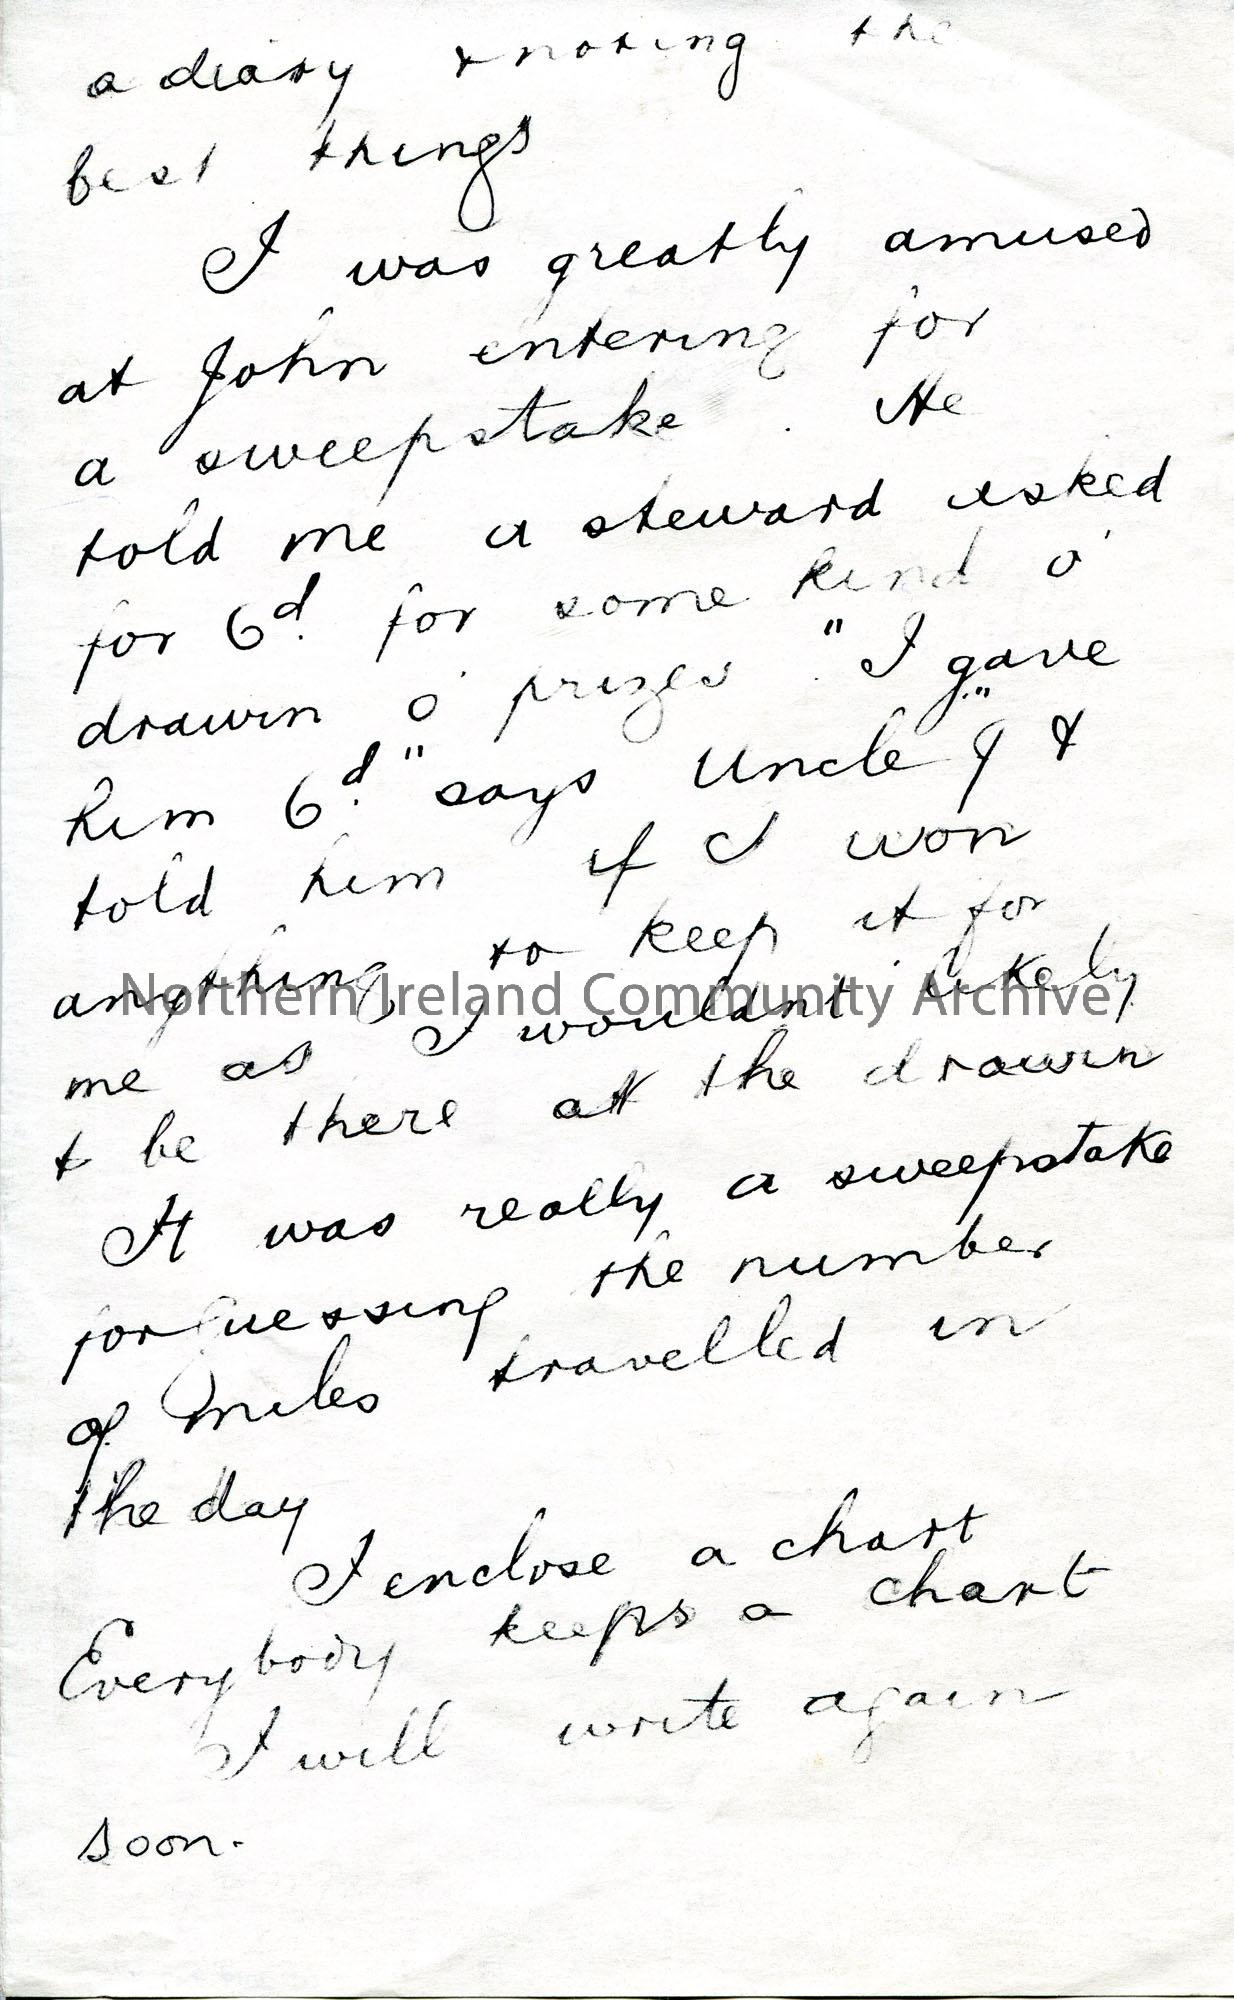 a diary & noting the
best things
I was greatly amused
at John entering for
a sweepstake. He
told me a steward asked
for 6d. for some kind o'
drawin o' prizes. "I gave
him 6d." says Uncle J "&
told him if I won
anything to keep it for
me as I wouldnt likely
t be there at the drawin
It was really a sweepstake
for guessing the number
of miles travelled in
the day
I enclose a chart
Everybody keeps a chart
I will write again
soon.
Northern Ireland Community Archive